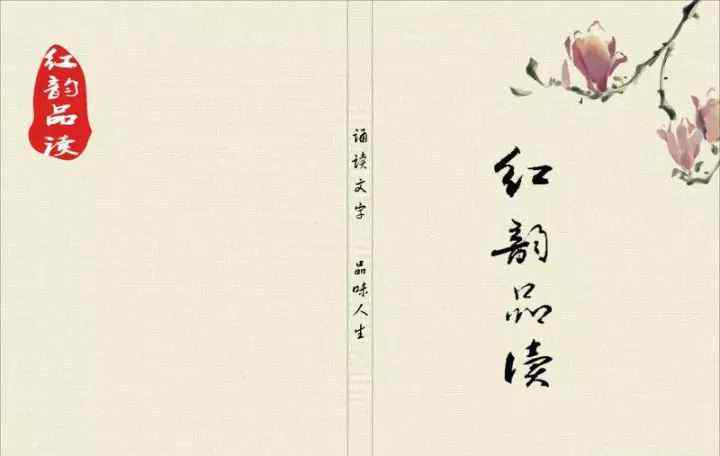 红韵品读
诵读文字 品味人生
红韵品读